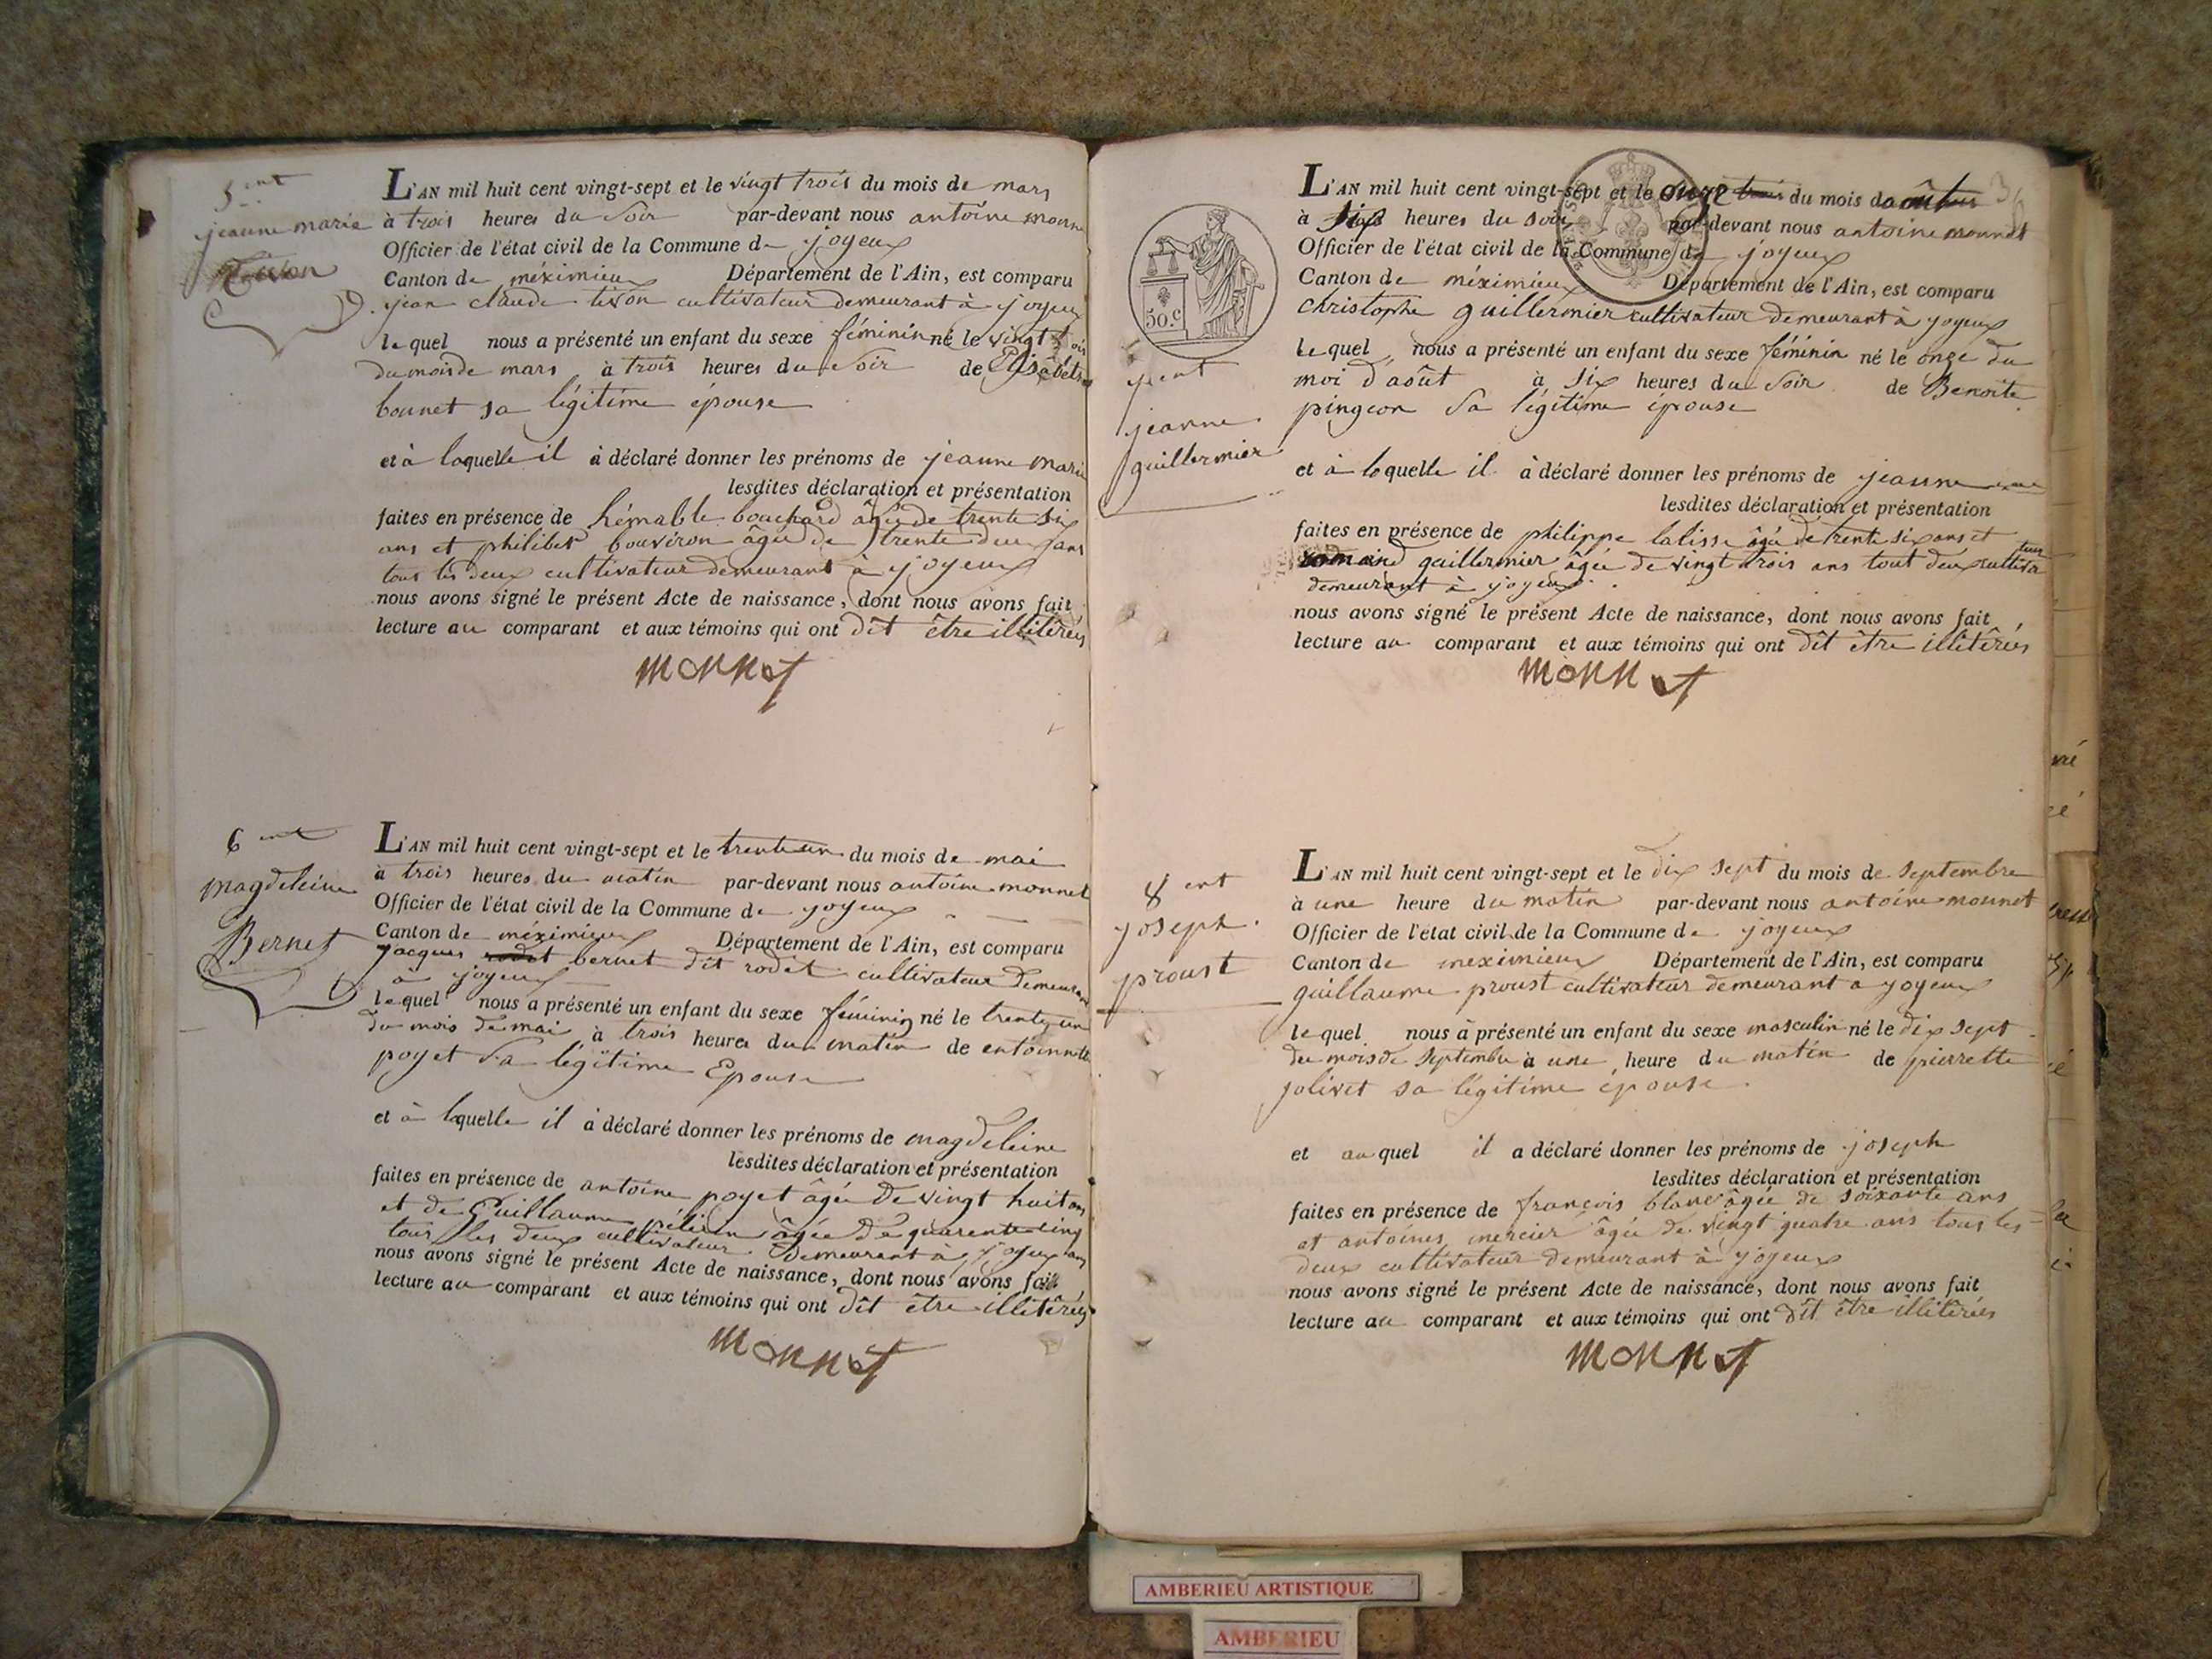 5 ent
jeanne marie
Tison
L'AN mil huit cent vingt-sept et le vingt trois du mois de mars
à trois heures du soir par-devant nous antoine monn
Officier de l'état civil de la Commune de joyeux
Canton de méximieux Département de l'Ain, est comparu
jean claude tison cultivateur demeurant à joyeux
le quel nous a présenté un enfant du sexe féminin né le vingt trois
du mois de mars à trois heures du soir de Elisabeth
bonnet sa légitime épouse
et à laquelle il à déclaré donner les prénoms de jeanne marie
lesdites déclaration et présentation
faites en présence de bouchard âgée de trente six
ans et philibert bouviron âgée de trente deux ans
tous les deux cultivateur demeurant à joyeux
nous avons signé le présent Acte de naissance, dont nous avons fait
lecture au comparant et aux témoins qui ont dit être illitêrées
monnet
6 ent
magdeleine
Bernet
L'AN mil huit cent vingt-sept et le trente un du mois de mai
à trois heures du matin par-devant nous antoine monnet
Officier de l'état civil de la Commune de joyeux
Canton de méximieux Département de l'Ain, est comparu
jacques rodet bernet dit rodet cultivateur demeurant
à joyeux
le quel nous a présenté un enfant du sexe féminin né le trente un
du mois de mai à trois heures du matin de antoinette
poyet sa légitime Epouse
et à laquelle il à déclaré donner les prénoms de magdeleine
lesdites déclaration et présentation
faites en présence de antoine poyet âgée de vingt huit ans
et de Guillaume âgée de quarente cinq ans
tous les deux cultivateur demeurant à joyeux
nous avons signé le présent Acte de naissance, dont nous avons fait
lecture au comparant et aux témoins qui ont dit être illitêrées
monnet
50.c
7 ent
jeanne
guillermier
L'AN mil huit cent vingt-sept et le onze trois du mois d'août
à six heures du soir par-devant nous antoine monnet
Officier de l'état civil de la Commune de joyeux
Canton de méximieux Département de l'Ain, est comparu
christophe guillermier cultivateur demeurant à joyeux
le quel nous a présenté un enfant du sexe féminin né le onze du
moi d'août à six heures du soir de Benoite
pingeon sa légitime épouse
et à laquelle il à déclaré donner les prénoms de jeanne
lesdites déclaration et présentation
faites en présence de philippe lalisse âgée de trente six ans et
romain guillermier âgée de vingt trois ans tout deux cultivateur
demeurant à joyeux
nous avons signé le présent Acte de naissance, dont nous avons fait
lecture au comparant et aux témoins qui ont dit être illitêrées
monnet
8 ent
joseph
proust
L'AN mil huit cent vingt-sept et le dix sept du mois de septembre
à une heure du matin par-devant nous antoine monnet
Officier de l'état civil de la Commune de joyeux
Canton de meximieux Département de l'Ain, est comparu
guillaume proust cultivateur demeurant a joyeux
le quel nous à présenté un enfant du sexe masculin né le dix sept
du mois de septembre à une heure du matin de pierrette
jolivet sa légitime épouse
et au quel il a déclaré donner les prénoms de joseph
lesdites déclaration et présentation
faites en présence de françois blanc âgée de soixante ans
et antoines mercier âgée de vingt quatre ans tous les
deux cultivateur demeurant à joyeux
nous avons signé le présent Acte de naissance, dont nous avons fait
lecture au comparant et aux témoins qui ont dit être illitêrées
monnet
AMBERIEU ARTISTIQUE
AMBERIEU